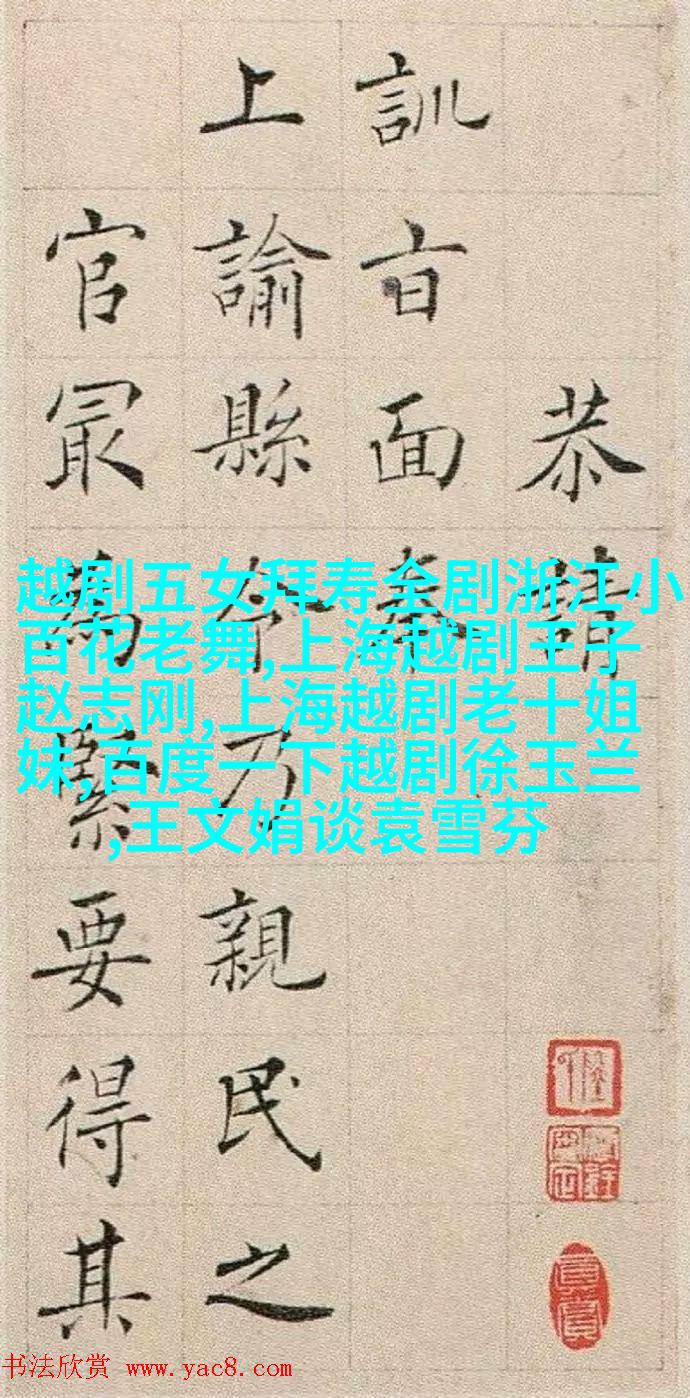 恭請
訓旨面奏
上諭縣令乃親民之
官最為緊要得其
越剧五女拜寿全剧浙江小
百花老舞,上海越剧王子
赵志刚,上海越剧老十姐
妹,百度一下越剧徐玉兰
,王文娟谈袁雪芬
书法欣赏 www.yac8.com